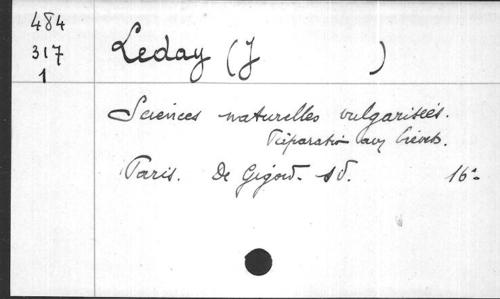 484
317
1
Leday (J )
Sciences naturelles vulgarisées.
Préparation aux brevets.
Paris. De Gigord. sd. 16°